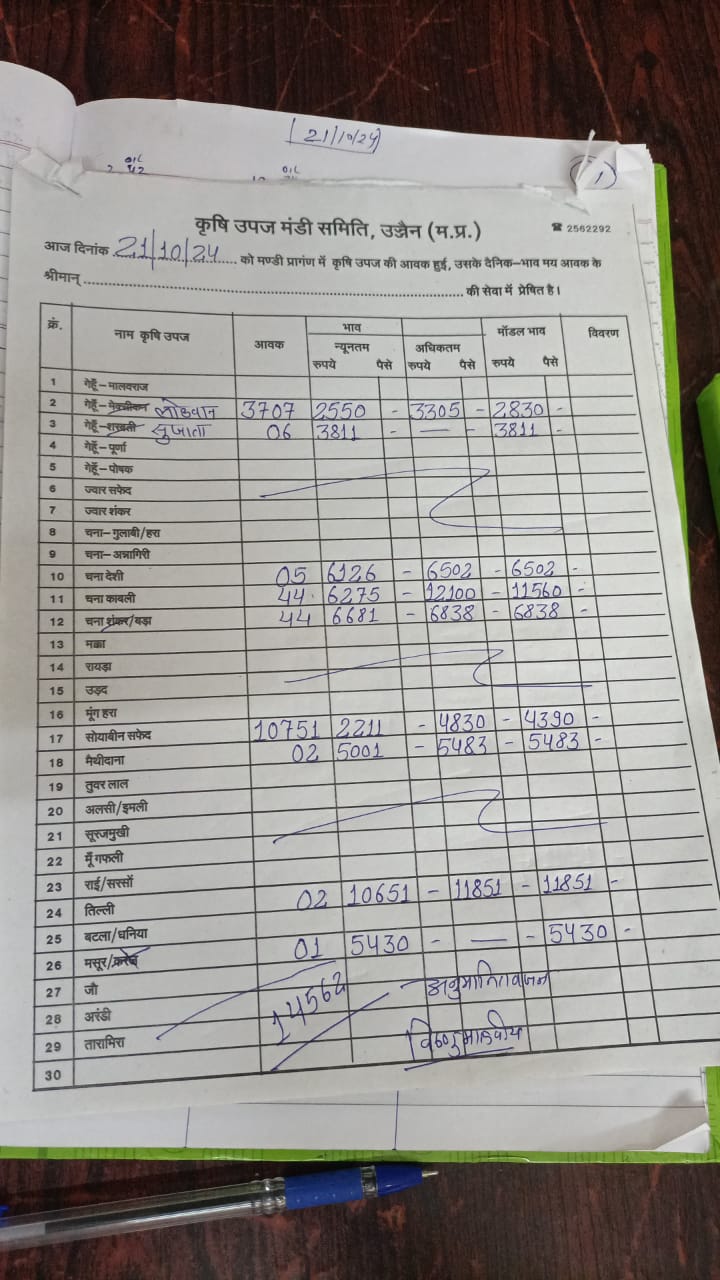 21/10/24
कृषि उपज मंडी समिति, उज्जैन (म.प्र.) ☎ 2562292
आज दिनांक 21/10/24 को मण्डी प्रागंण में कृषि उपज की आवक हुई, उसके दैनिक-भाव मय आवक के
श्रीमान् की सेवा में प्रेषित है।
क्रं. नाम कृषि उपज आवक भाव मॉडल भाव विवरण
न्यूनतम अधिकतम
रुपये पैसे रुपये पैसे रुपये पैसे
1 गेहूँ-मालवराज
2 गेहूँ- लोकवान 3707 2550 - 3305 - 2830 -
3 गेहूँ-शरबती सुजाता 06 3811 - — - 3811 -
4 गेहूँ-पूर्णा
5 गेहूँ-पोषक
6 ज्वार सफेद
7 ज्वार शंकर
8 चना-गुलाबी/हरा
9 चना-अन्नागिरी
10 चना देशी 05 6126 - 6502 - 6502 -
11 चना काबली 44 6275 - 12100 - 11560 -
12 चना शंकर/बड़ा 44 6681 - 6838 - 6838 -
13 मक्का
14 रायड़ा
15 उड़द
16 मूंग हरा
17 सोयाबीन सफेद 10751 2211 - 4830 - 4390 -
18 मैथीदाना 02 5001 - 5483 - 5483 -
19 तुवर लाल
20 अलसी/इमली
21 सूरजमुखी
22 मूँगफली
23 राई/सरसों
24 तिल्ली 02 10651 - 11851 - 11851 -
25 बटला/धनिया
26 मसूर/ 01 5430 - — - 5430 -
27 जौ
28 अरंडी 14562 - अनुमानित वजन
29 तारामिरा
30